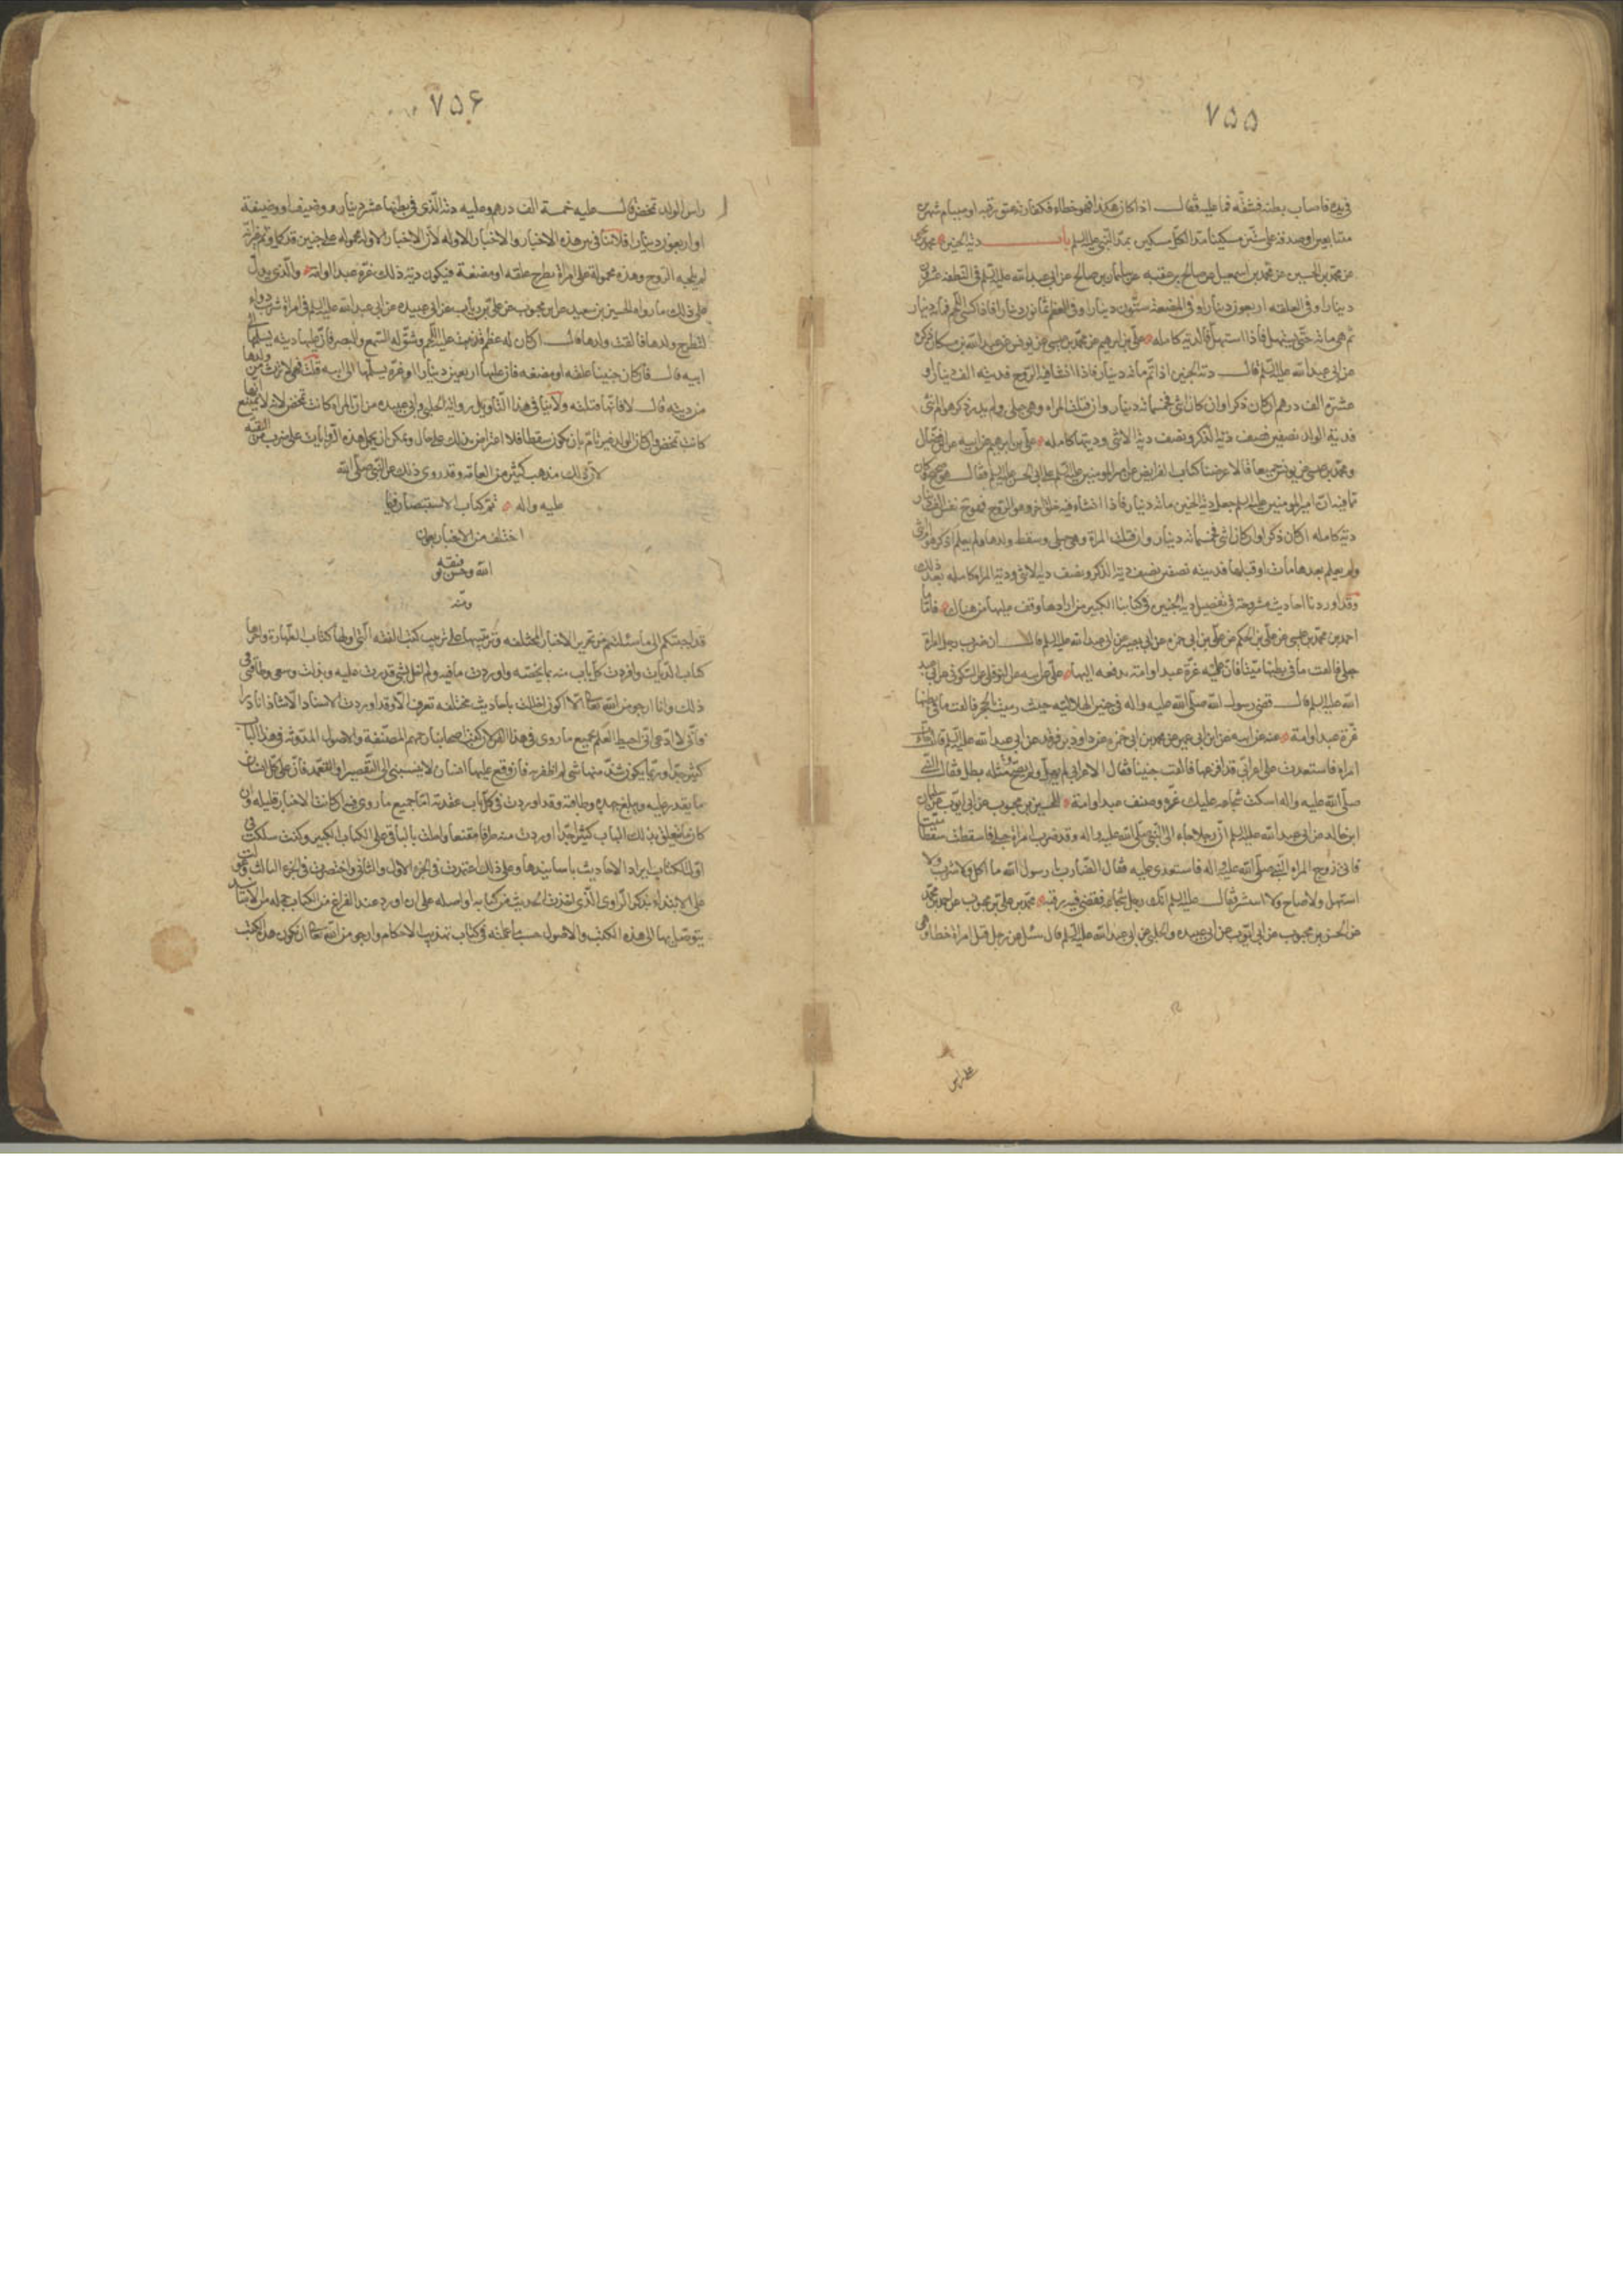 ۷۵۵
في يده فاصاب بطنه فشقه فما عليه فقال اذا كان هكذا فهو خطاء فكفارته عتق رقبة او صيام شهرين
متتابعين او صدقة على ستين مسكينا مدا لكل مسكين بمد النبي عليه السلم باب دية الجنين محمد بن يحيى
عن محمد بن الحسين عن محمد بن اسمعيل عن صالح بن عقبه عن سليمان بن صالح عن ابي عبد الله عليه السلم في النطفه عشرون
دينارا وفي العلقه اربعون دينارا وفي المضغة ستون دينارا وفي العظم ثمانون دينارا فاذا كسي اللحم فمائة دينار
ثم هي مائة حتى يستهل فاذا استهل فالدية كامله علي بن ابرهيم عن محمد بن عيسى عن يونس عن عبد الله بن مسكان ذكره
عن ابي عبد الله عليه السلم قال دية الجنين اذا تم مائة دينار فاذا انشا فيه الروح فديته الف دينار او
عشرة الف درهم ان كان ذكرا وان كان انثى فخمسمائه دينار وان قتلت المراه وهي حبلى ولم يدر ذكر هو ام انثى
فدية الولد نصفين نصف دية الذكر ونصف دية الانثى وديتها كامله علي بن ابرهيم عن ابيه عن ابن فضال
ومحمد بن عيسى عن يونس جميعا قالا عرضنا كتاب الفرايض عن امير المومنين عليه السلم على ابي الحسن عليه السلم فقال هو صحيح وكان
مما فيه ان امير المومنين عليه السلم جعل دية الجنين مائة دينار فاذا انشاء فيه خلق اخر وهو الروح فهو ح نفس الف دينار
دية كامله ان كان ذكرا وان كان انثى فخمسمائه دينار وان قتلت المراة وهي حبلى وسقط ولدها ولم يعلم اذكر هو او انثى
ولم يعلم بعدها مات او قبلها فديته نصفين نصف دية الذكر ونصف دية الانثى ودية المراه كامله بعد ذلك
وقد اوردنا احاديث مشروحة في تفصيل دية الجنين في كتابنا الكبير من ارادها وقف عليها من هناك فاما ما
احمد بن محمد بن عيسى عن علي بن الحكم عن علي بن ابي حمزه عن ابي بصير عن ابي عبد الله عليه السلم قال ان ضرب رجل امراة
حبلى فالقت ما في بطنها ميتا فان عليه غرة عبد او امة يدفعه اليها علي عن ابيه عن النوفلي عن السكوني عن ابي عبد
الله عليه السلم قال قضى رسول الله صلى الله عليه واله في جنين الهلاليه حيث رميت بالحجر فالقت ما في بطنها
غرة عبد او امة عنه عن ابيه عن ابن ابي عمير عن محمد بن ابي حمزه عن داود بن فرقد عن ابي عبد الله عليه السلم قال جاءت
امراه فاستعدت على اعرابي قد افزعها فالقت جنينا فقال الاعرابي لم يهل ولم يصح ومثله يطل فقال النبي
صلى الله عليه واله اسكت شجاعه عليك غرة وصيف عبد او امة الحسين بن محبوب عن ابي ايوب عن سليمان
ابن خالد عن ابي عبد الله عليه السلم ان رجلا جاء الى النبي صلى الله عليه واله وقد ضرب امراة حبلى فاسقطت سقطا ميتا
فاتى زوج المراه النبي صلى الله عليه واله فاستعدى عليه فقال الضارب يا رسول الله ما اكل ولا شرب ولا
استهل ولا صاح ولا استبشر فقال عليه السلم انك رجل سجاعه فقضى فيه برقبة محمد بن علي بن محبوب عن احمد بن محمد
عن الحسن بن محبوب عن ابي ايوب عن ابي عبيده والحلبي عن ابي عبد الله عليه السلم قال سئل عن رجل قتل امراة خطا وهي
۷۵۶
راس الولد تمخض قال عليه خمسة الف درهم وعليه دية الذي في بطنها عشر دينار وصيف او وصيفة
او اربعون دينارا فلا تنافي بين هذه الاخبار والاخبار الاوله لان الاخبار الاوله محموله على جنين قد كمل وتم غير انه
لم يلجه الروح وهذه محمولة على امراة تطرح علقه او مضغة فيكون دية ذلك غرة عبد او امة والذي يدل
على ذلك ما رواه الحسين بن سعيد عن ابن محبوب عن علي بن رئاب عن ابي عبيده عن ابي عبد الله عليه السلم في امراة شربت دواء
لتطرح ولدها فالقت ولدها قال ان كان له عظم قد نبت عليه اللحم وشق له السمع والبصر فان عليها دية يسلمها الى
ابيه قال فان كان جنينا علقه او مضغه فان عليها اربعين دينارا او غرة يسلمها الى ابيه قلت فهي لا ترث من ولدها
من ديته قال لا لانها قتلته ولا ينافي هذا التأويل رواية الحلبي وابي عبيده من ان المراه كانت تمخض لانه لا يمتنع انها
كانت تمخض وان كان الولد غير تام بان يكون سقطا فلا اعتراض بذلك على حال ويمكن ان يحمل هذه الروايات على ضرب من التقية
لان ذلك مذهب كثير من العامه وقد روى ذلك عن النبي صلى الله
عليه واله تم كتاب الاستبصار فيما
اختلف من الاخبار بعون
الله وحسن توفيقه
ومنه
قد اجبتكم الى ما سئلتم من تجريد الاخبار المختلفه وترتيبها على ترتيب كتب الفقه التي اولها كتاب الطهارة واخرها
كتاب الديات وافردت كل باب منه بما يخصه واوردت ما فيه ولم اخل بشي قدرت عليه وبذلت وسعي وطاقتي في
ذلك وانا ارجو من الله تعالى الا اكون اخللت باحاديث مختلفه تعرف الا وقد اوردت الاسناد الا شاذا نادرا
فاني لا ادعي اني احيط العلم بجميع ما روي في هذا الفن لان كتب اصحابنا رحمهم المصنفة والاصول المدونة في هذا الباب
كثير جدا وربما يكون شذ منها شي لم اظفر به فان وقع عليها انسان لا ينسبني الى التقصير او التعمد فان على كل انسان
ما يقدر عليه ويبلغ جهده وطاقته وقد اوردت في كل باب عقدته اما جميع ما روي فيه ان كانت الاخبار قليله وان
كان ما يتعلق بذلك الباب كثيرا جدا اوردت منه طرفا مقنعا واحلت بالباقي على الكتاب الكبير وكنت سلكت في
اول الكتاب ايراد الاحاديث باسانيدها وعلى ذلك اعتمدت في الجزء الاول والثاني واختصرت في الجزء الثالث وعولت
على الابتداء بذكر الراوي الذي اخذت الحديث من كتابه او اصله على ان اورد عند الفراغ من الكتاب جمله من الاسانيد
يتوصل بها الى هذه الكتب والاصول حسب ما عملته في كتاب تهذيب الاحكام وارجو من الله تعالى ان يكون هذه الكتب